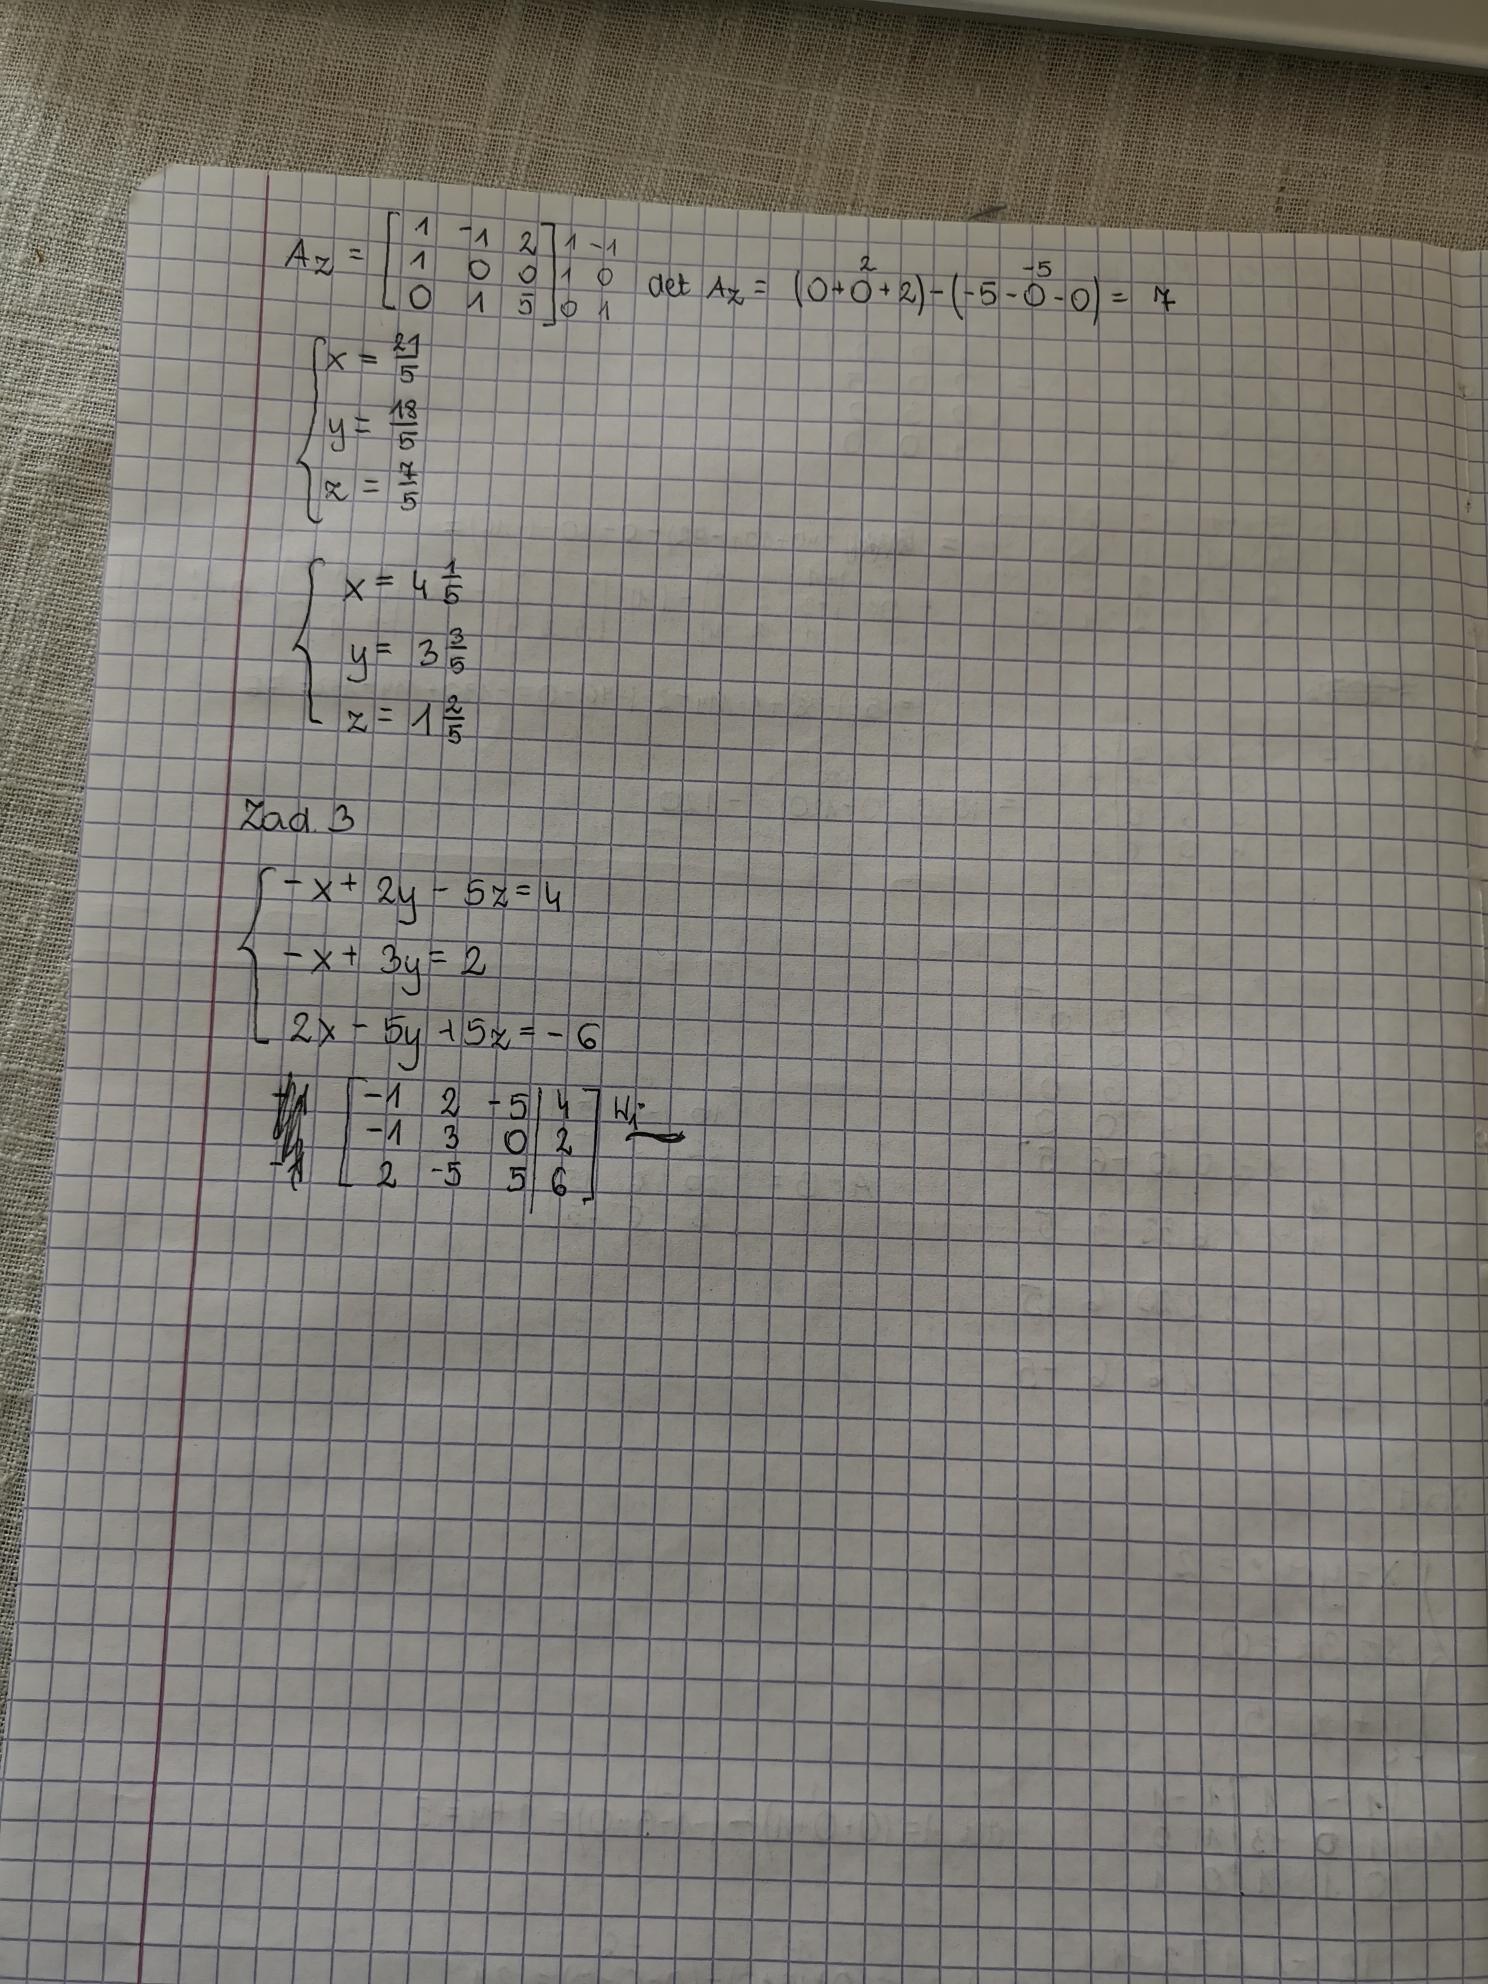 Az = [1 -1 2] 1 -1
[1 0 0] 1 0
[0 1 5] 0 1
det Az = (0+0+2)-(-5-0-0) = 7
2
-5
x = 21/5
y = 18/5
z = 7/5
x = 4 1/5
y = 3 3/5
z = 1 2/5
Zad. 3
-x + 2y - 5z = 4
-x + 3y = 2
2x - 5y + 5z = -6
[-1 2 -5 | 4]
[-1 3 0 | 2]
[2 -5 5 | 6]